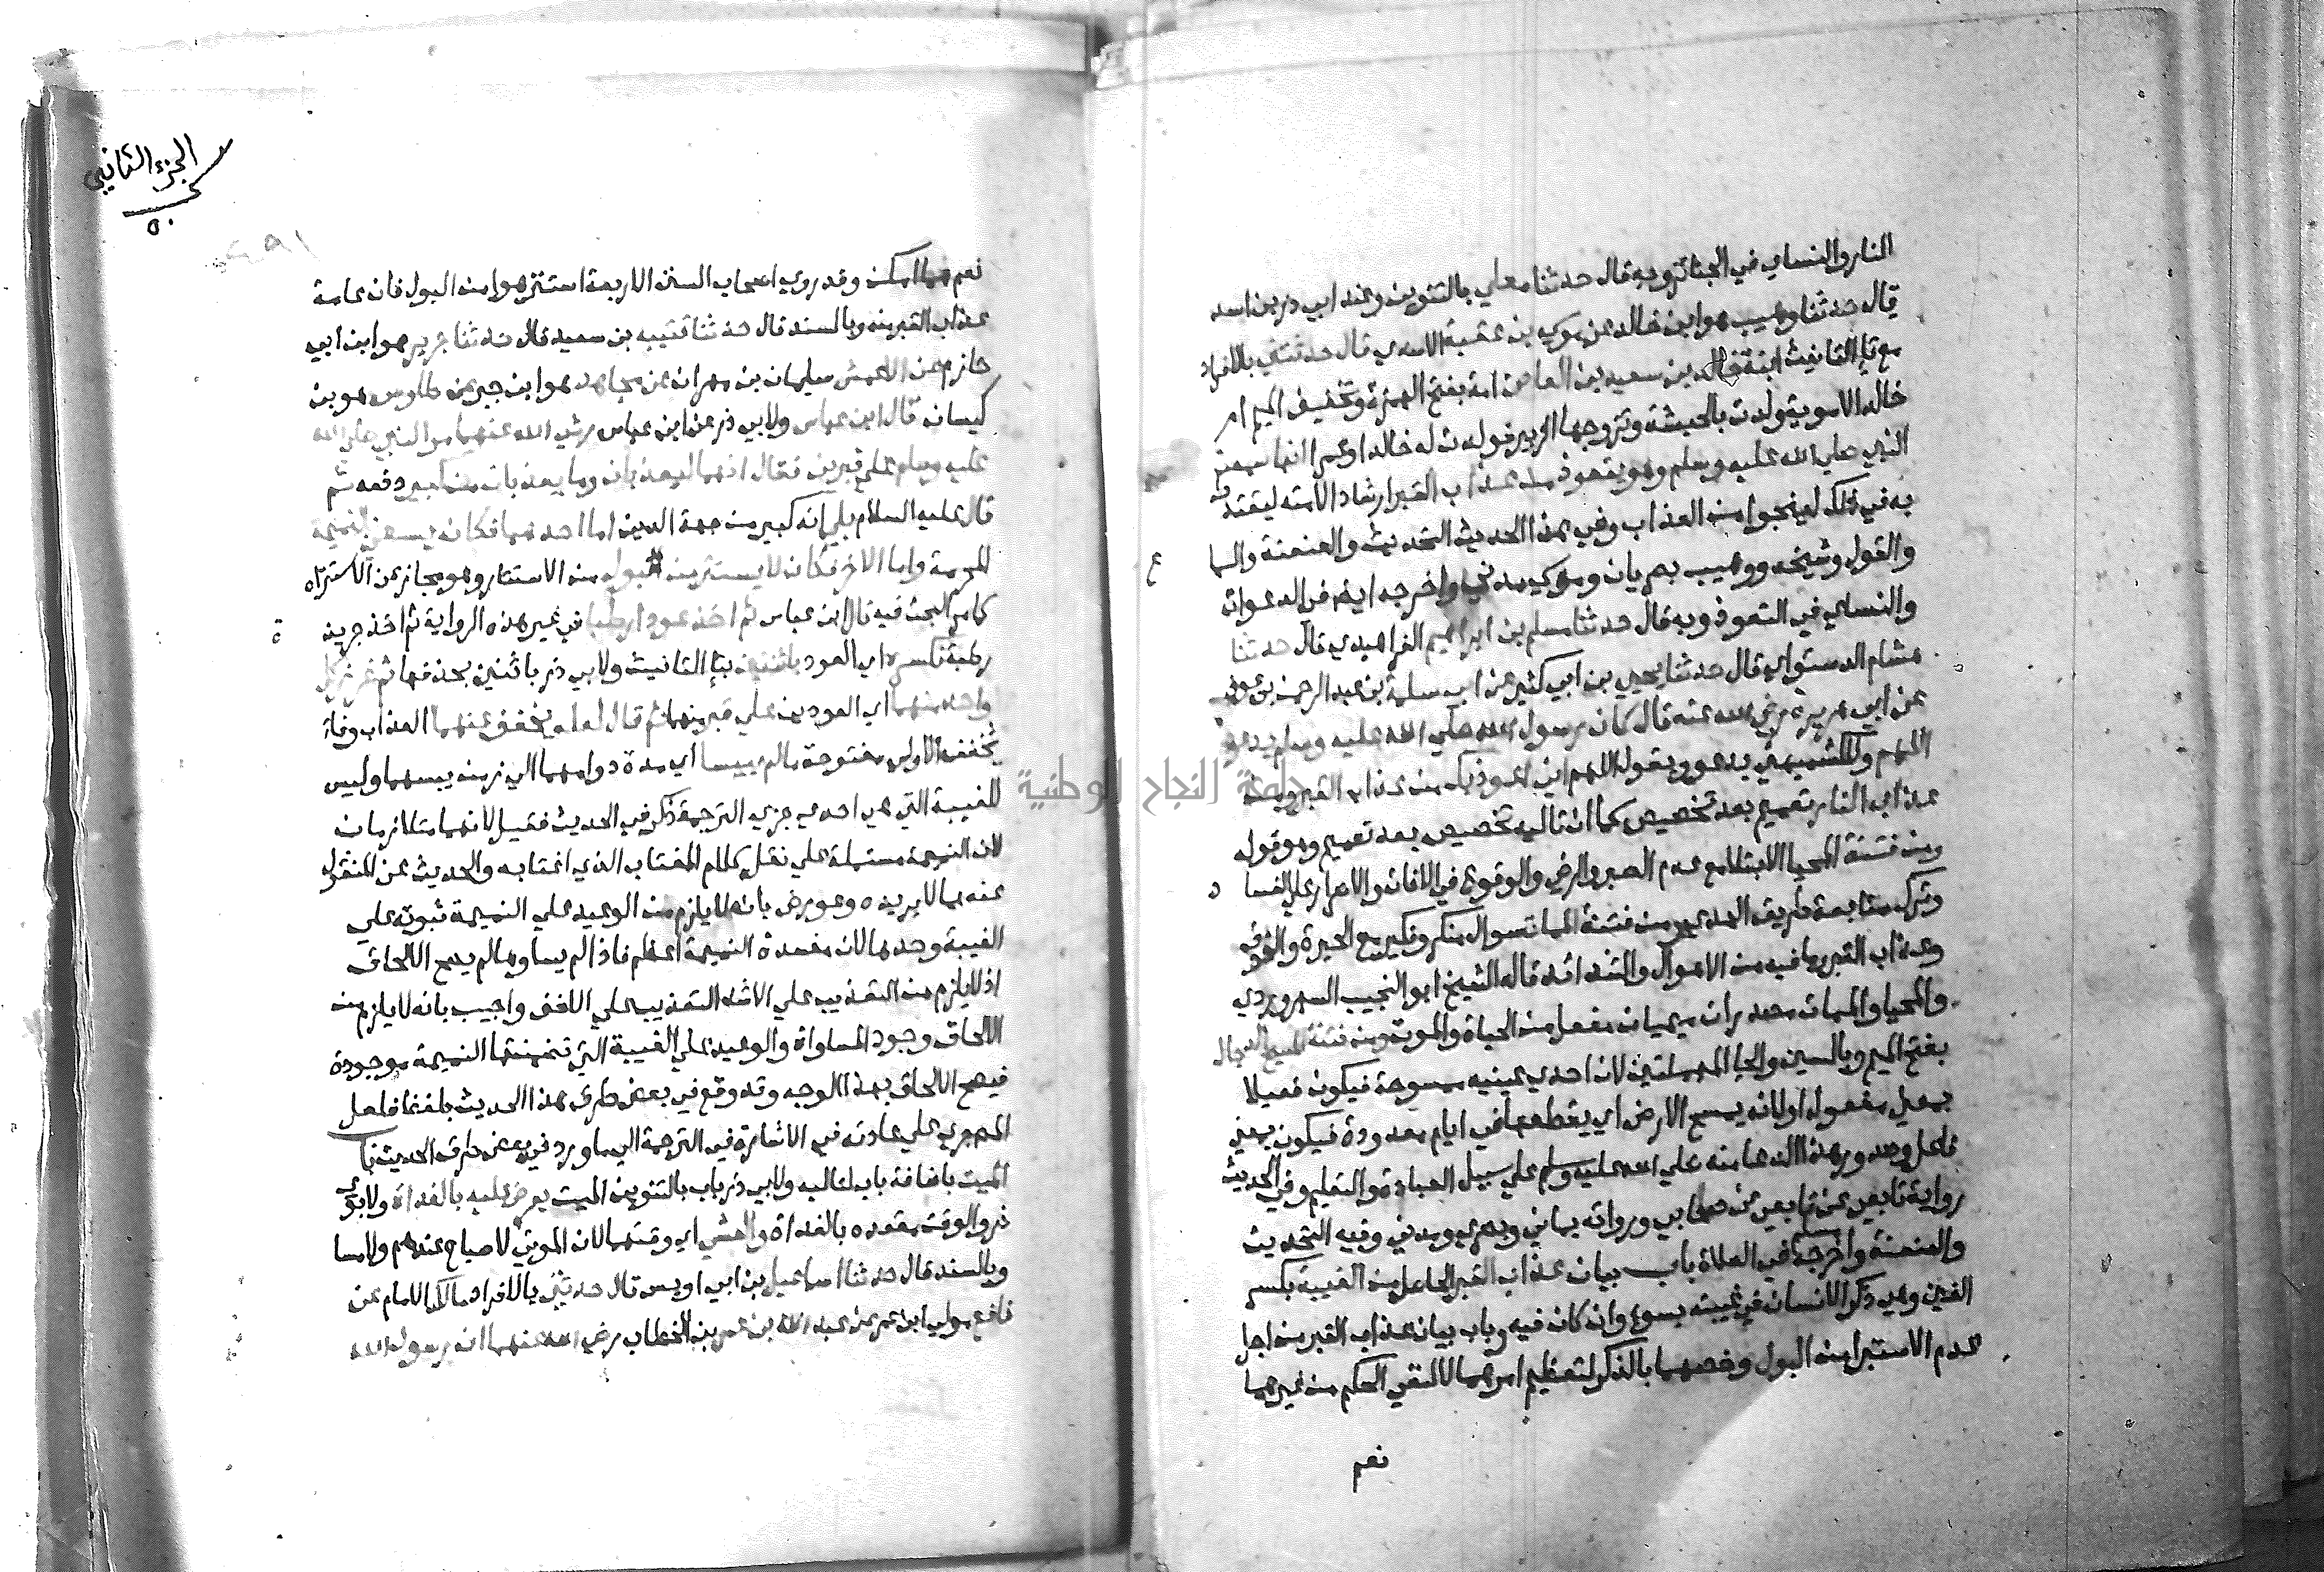 النار والنساي في الجنائز وبه قال حدثنا معلي بالتنوين وعند ابي ذر بن اسد
قال حدثنا وهيب هو ابن خالد عن موسي بن عقبة الاسدي قال حدثتني بالافراد
مع تا التانيث ابنة خالد بن سعيد بن العاص امة بفتح الهمزة وتخفيف الميم ام
خالد الاموية ولدت بالحبشة وتزوجها الزبير فولدت له خالدا وعمرا انها سمعت
النبي صلي الله عليه وسلم وهو يتعوذ من عذاب القبر ارشاد الامته ليقتدو
به في ذلك لينجوا من العذاب وفي هذا الحديث التحديث والعنعنة والسما
ع
والقول وشيخه ووهيب بصريان وموسي مدني واخرجه ايضا في الدعوات
والنساي في التعوذ وبه قال حدثنا مسلم بن ابراهيم الفراهيدي قال حدثنا
هشام الدستواي قال حدثنا يحيي بن ابي كثير عن ابي سلمة بن عبد الرحمن بن عوف
عن ابي هريرة رضي الله عنه قال كان رسول الله صلي الله عليه وسلم يدعو
اللهم وللكشميهني يدعو ويقول اللهم اني اعوذ بك من عذاب القبر ومن
عذاب النار تعميم بعد تخصيص كما ان تاليه تخصيص بعد تعميم وهو قوله
ومن فتنة المحيا الابتلا مع عدم الصبر والرضي والوقوع في الافات والاصرار علي الفسا
د
وترك متابعة طريق الهدي ومن فتنة الممات سوال منكر ونكير مع الحيرة والخوف
وعذاب القبر وما فيه من الاهوال والشدائد قاله الشيخ ابو النجيب السهروردي
والمحيا والممات مصدران ميميان مفعل من الحياة والموت ومن فتنة المسيح الدجال
بفتح الميم وبالسين والحا المهملتين لان احدي عينيه ممسوحة فيكون فعيلا
بمعني مفعول او لانه يمسح الارض اي يقطعها في ايام معدودة فيكون بمعني
فاعل وصدور هذا الدعا منه صلي الله عليه وسلم علي سبيل العبادة والتعليم وفي الحديث
رواية تابعي عن تابعي عن صحابي ورواته يماني وبصري ومدني وفيه التحديث
والعنعنة واخرجه مسلم في الصلاة باب بيان عذاب القبر الحاصل من الغيبة بكسر
الغين وهي ذكر الانسان في غيبته بسوء وان كان فيه وباب بيان عذاب القبر من اجل
عدم الاستبرا من البول وخصهما بالذكر لتعظيم امرهما لا لنفي الحكم من غيرهما
نعم
الجزء الثاني
٥٠
نعم هما امكن وقد روي اصحاب السنن الاربعة استنزهوا من البول فان عامة
عذاب القبر منه وبالسند قال حدثنا قتيبه بن سعيد قال حدثنا جرير هو ابن ابي
حازم عن الاعمش سليمان بن مهران عن مجاهد هو ابن جبر عن طاوس هو بن
كيسان قال ابن عباس ولابي ذر عن ابن عباس رضي الله عنهما مر النبي صلي الله
عليه وسلم علي قبرين فقال انهما ليعذبان وما يعذبان من كبير دفعه ثم
قال عليه السلام بلي انه كبير من جهة الدين اما احدهما فكان يسعي بالنميمة
المحرمة واما الاخر فكان لا يستتر من البول من الاستتار وهو مجاز عن الاستنزاه
كما مر البحث فيه قال ابن عباس ثم اخذ عودا رطبا في غير هذه الرواية ثم اخذ جريد
ة
رطبة فكسره اي العود باثنتين بتا التانيث ولابي ذر باثنين بحذفها ثم غرز كل
واحد منهما اي العودين علي قبر منهما ثم قال لعله يخفف عنهما العذاب وفاء
يخفف الاولي مفتوحة مالم ييبسا اي مدة دوامهما الي زمن يبسهما وليس
للغيبة التي هي احدي جزي الترجمة ذكر في الحديث فقيل لانهما متلازمان
لان النميمة مشتملة علي نقل كلام المغتاب الذي اغتابه والحديث عن المنقول
عنه بما لا يريده وعورض بانه لا يلزم من الوعيد علي النميمة ثبوته علي
الغيبة وحدها لان مفسدة النميمة اعظم فاذا لم يساوها لم يصح الالحاق
اذ لا يلزم من التعذيب علي الاشد التعذيب علي الاخف واجيب بانه لا يلزم من
الالحاق وجود المساواة والوعيد علي الغيبة التي تضمنتها النميمة موجودة
فيصح الالحاق بهذا الوجه وقد وقع في بعض طرق هذا الحديث بلفظ فلعل
المص جري علي عادته في الاشارة في الترجمة الي ما ورد في بعض طرق الحديث باب
الميت باضافة باب لتاليه ولابي ذر باب بالتنوين الميت يعرض عليه بالغداة ولابوي
ذر والوقت مقعده بالغداة والعشي اي وقتهما لان الموتي لا صباح عندهم ولا مسا
وبالسند قال حدثنا اسماعيل بن ابي اويس قال حدثني بالافراد مالك الامام عن
نافع مولي ابن عمر عن عبد الله بن عمر بن الخطاب رضي الله عنهما ان رسول الله
جامعة النجاح الوطنية